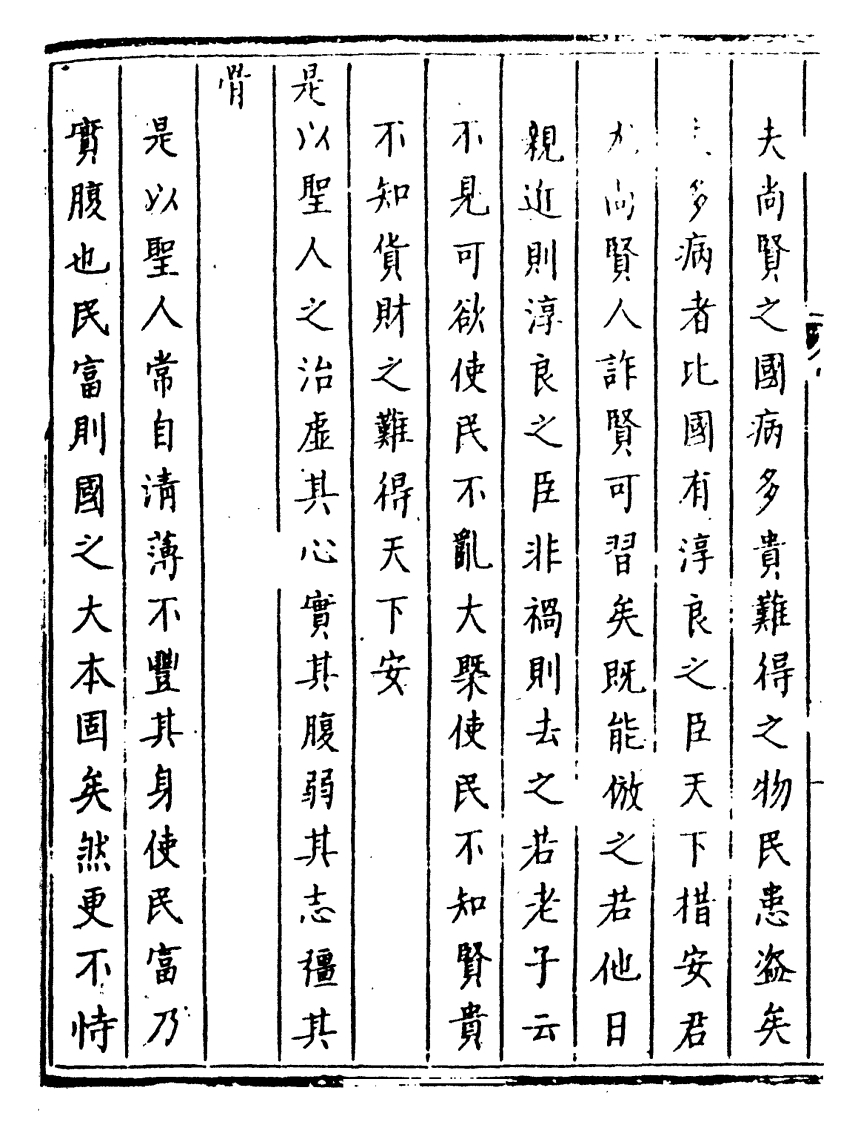 夫尚賢之國病多貴難得之物民患盜矣
多病者比國有淳良之臣天下措安君
尚賢人詐賢可習矣既能倣之若他日
親近則淳良之臣非禍則去之若老子云
不見可欲使民不亂大槩使民不知賢貴
不知貨財之難得天下安
是以聖人之治虛其心實其腹弱其志彊其
骨
是以聖人常自清薄不豐其身使民富乃
實腹也民富則國之大本固矣然更不恃